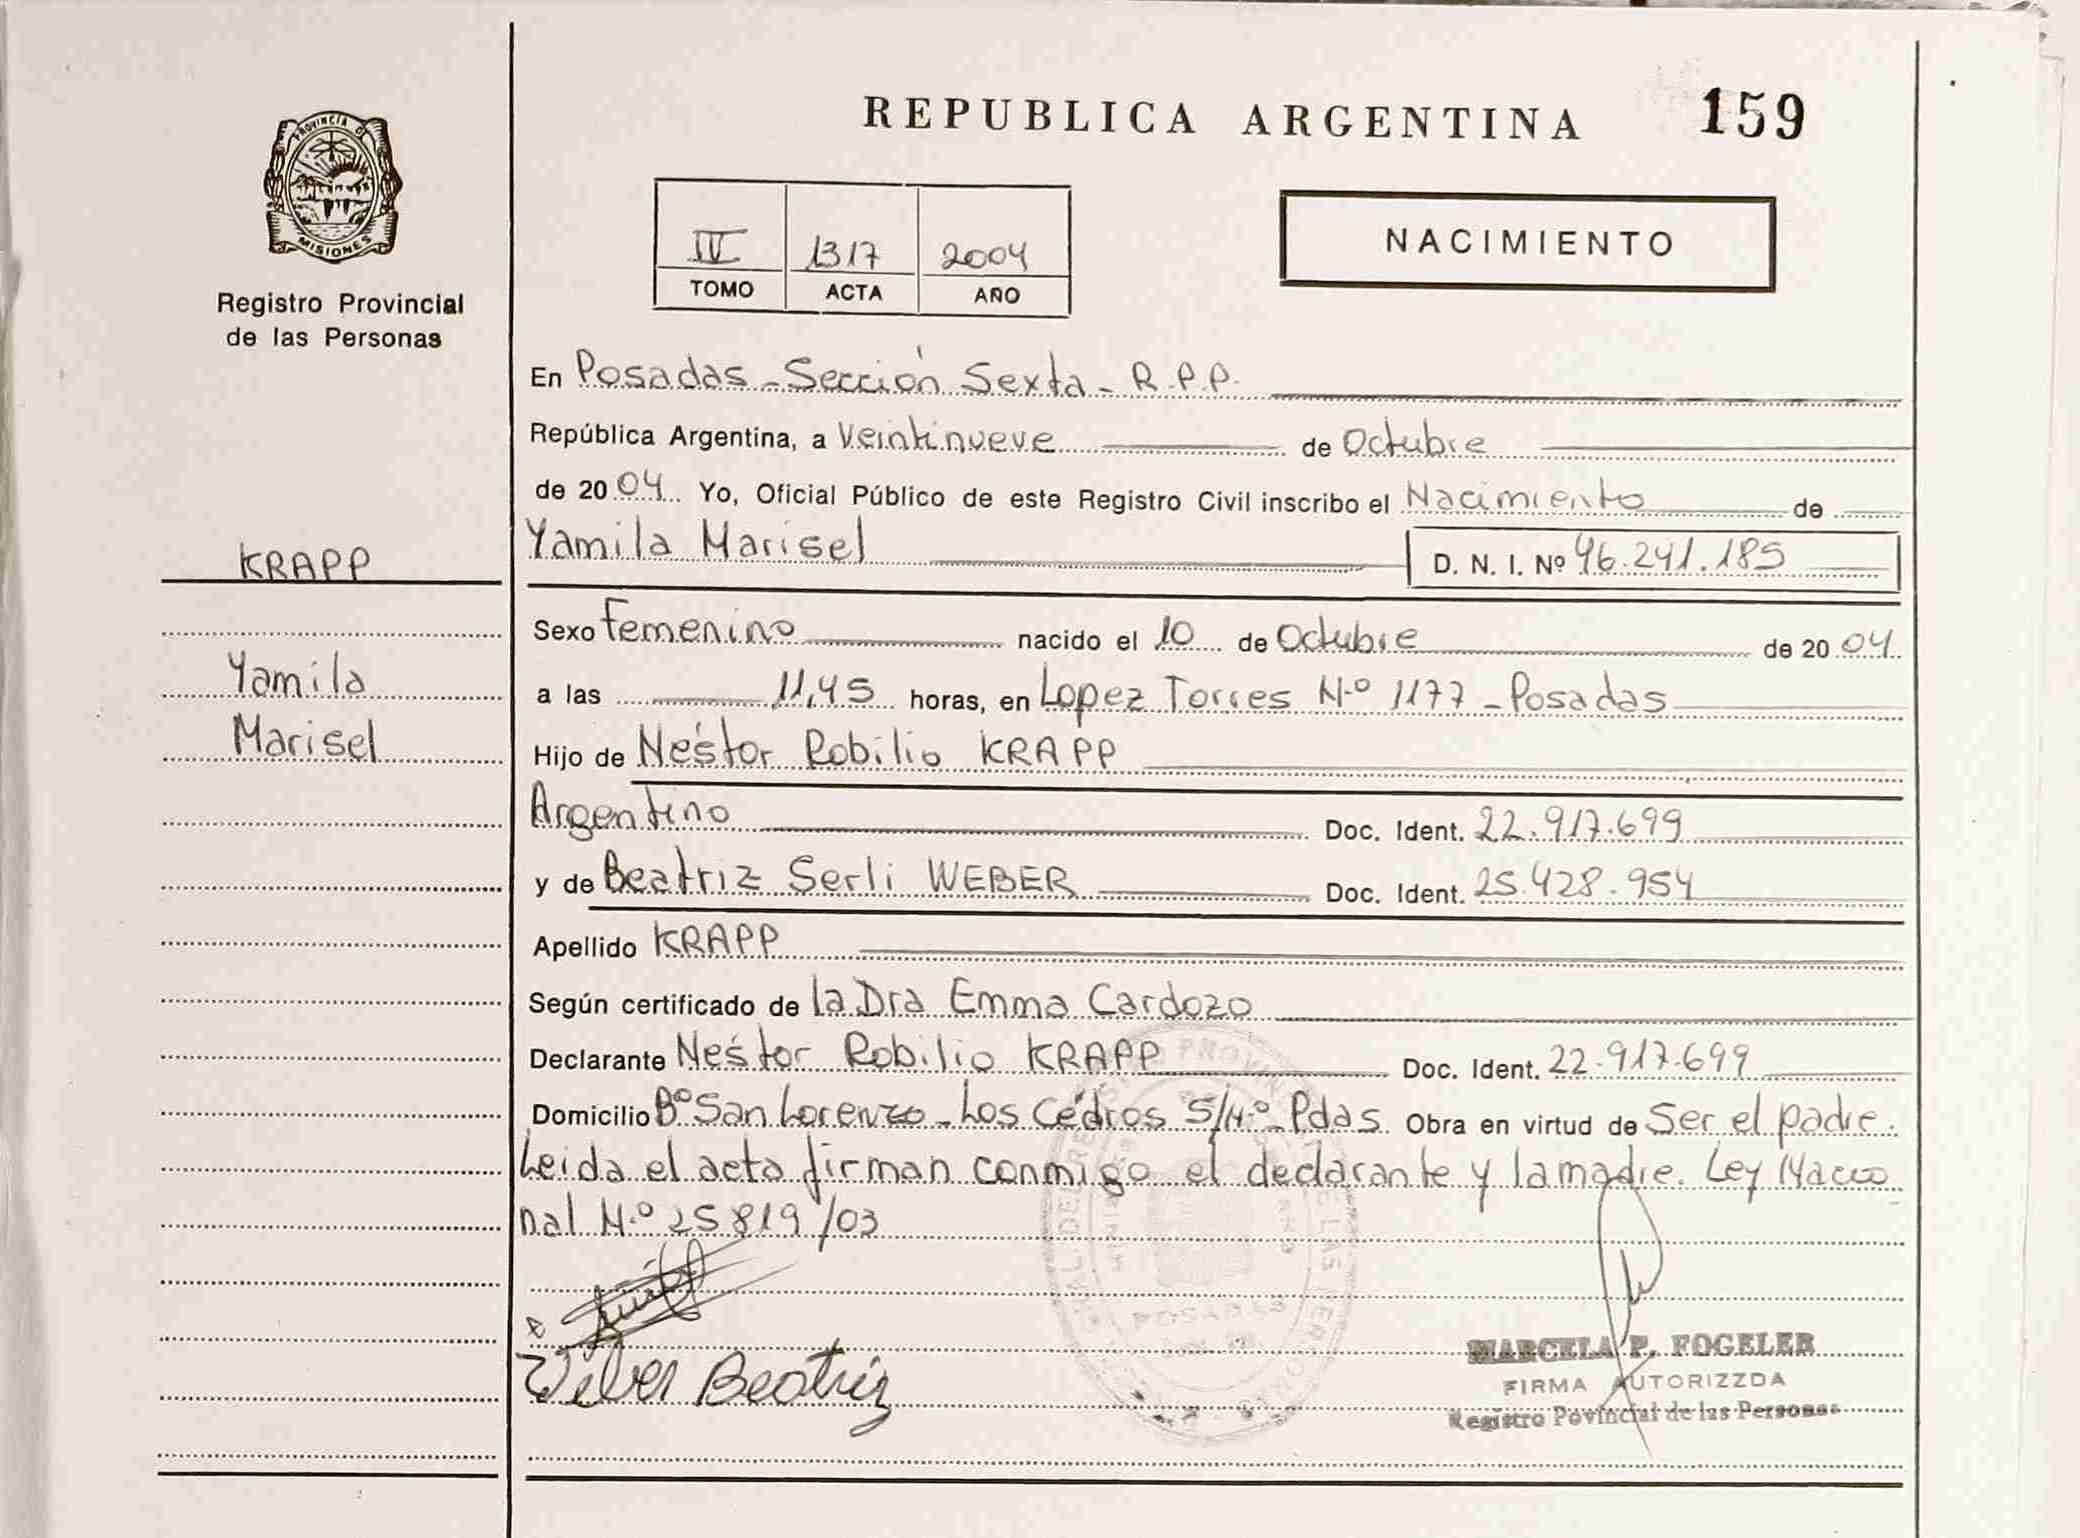 PROVINCIA D
MISIONES
Registro Provincial
de las Personas
KRAPP
Yamila
Marisel
REPUBLICA ARGENTINA 159
IV 1317 2004
TOMO ACTA AÑO
NACIMIENTO
En Posadas - Sección Sexta - R.P.P.
República Argentina, a Veintinueve de Octubre
de 2004 Yo, Oficial Público de este Registro Civil inscribo el Nacimiento de
Yamila Marisel D. N. I. Nº 46.241.185
Sexo Femenino nacido el 10 de Octubre de 2004
a las 11,45 horas, en Lopez Torres N.º 1177 - Posadas
Hijo de Néstor Robilio KRAPP
Argentino Doc. Ident. 22.917.699
y de Beatriz Serli WEBER Doc. Ident. 25.428.954
Apellido KRAPP
Según certificado de la Dra Emma Cardozo
Declarante Néstor Robilio KRAPP Doc. Ident. 22.917.699
Domicilio Bº San Lorenzo - Los Cedros S/N.º - Pdas. Obra en virtud de Ser el padre.
Leida el acta firman conmigo el declarante y la madre. Ley Nacio
nal N.º 25819/03
Weber Beatriz
MARCELA P. FOGELER
FIRMA AUTORIZZDA
Registro Povincial de las Personas
POSADAS